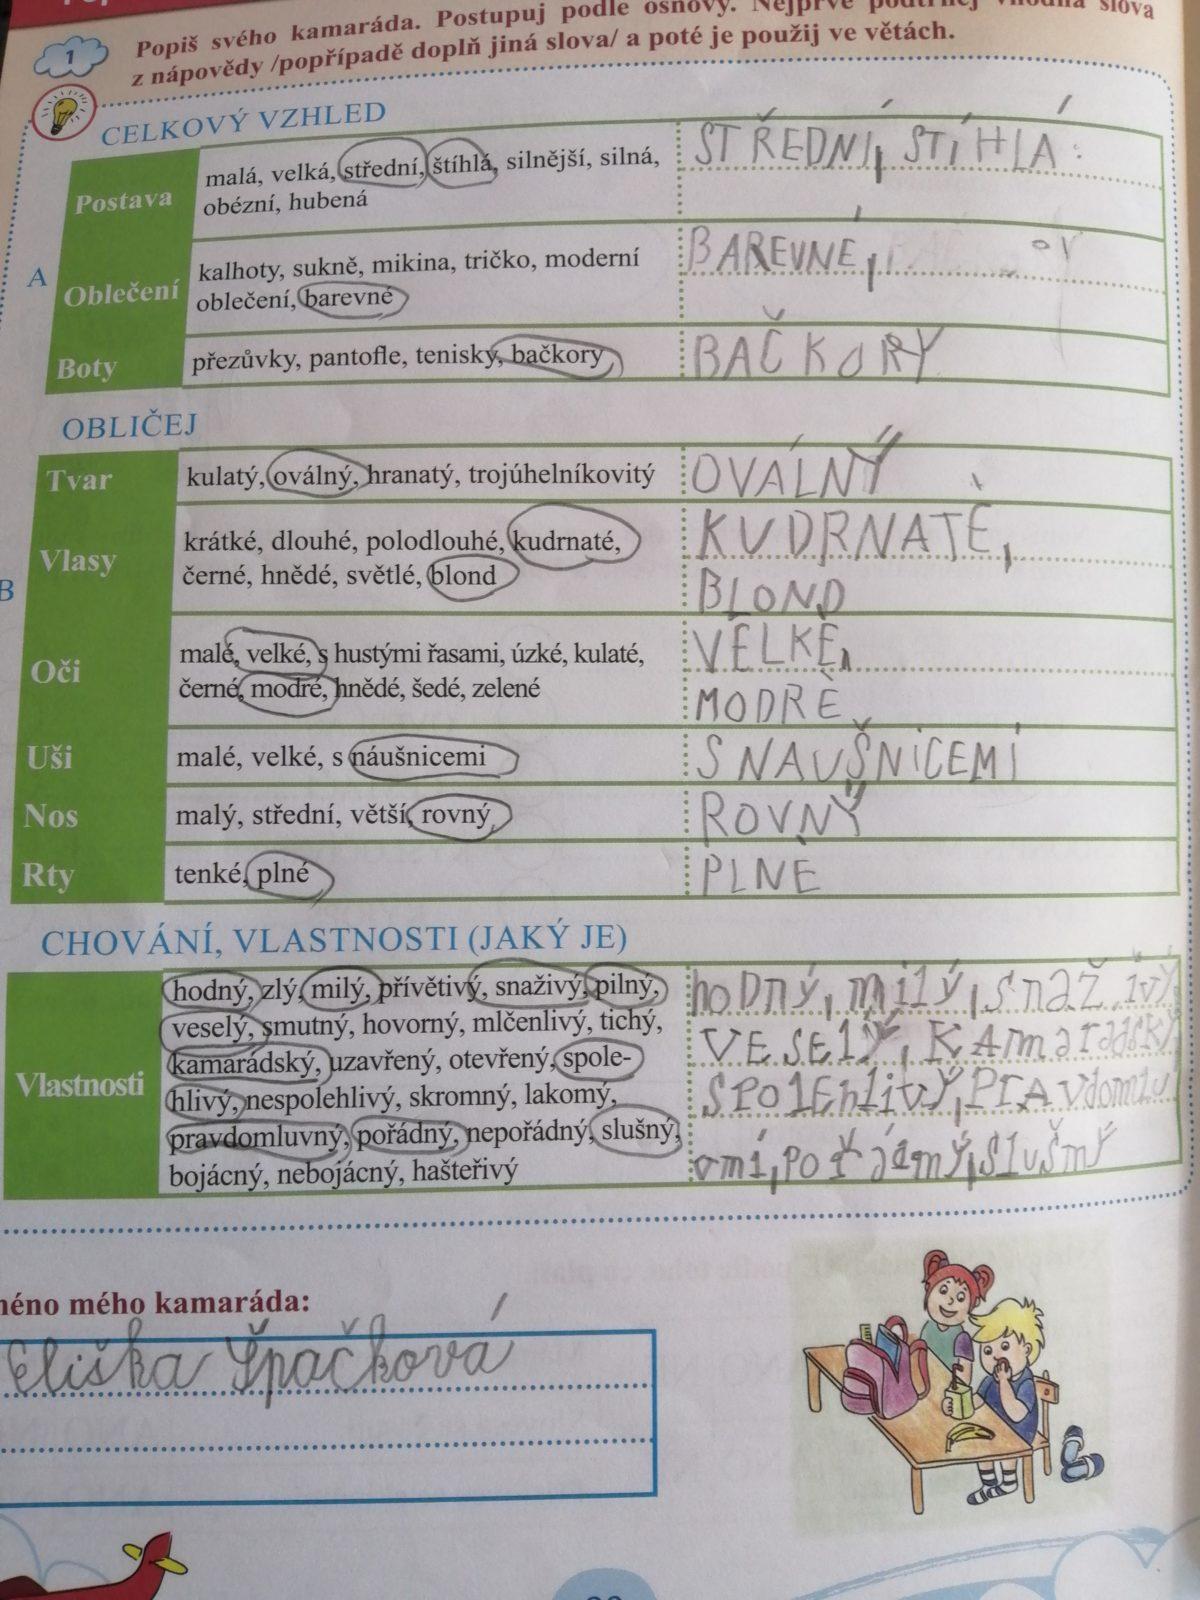 1
Popiš svého kamaráda. Postupuj podle osnovy. Nejprve podtrhej vhodná slova
z nápovědy /popřípadě doplň jiná slova/ a poté je použij ve větách.
CELKOVÝ VZHLED
A
Postava
malá, velká, střední, štíhlá, silnější, silná,
obézní, hubená
STŘEDNÍ, STÍHLÁ
Oblečení
kalhoty, sukně, mikina, tričko, moderní
oblečení, barevné
BAREVNÉ,
Boty
přezůvky, pantofle, tenisky, bačkory
BAČKORY
OBLIČEJ
B
Tvar
kulatý, oválný, hranatý, trojúhelníkovitý
OVÁLNÝ
Vlasy
krátké, dlouhé, polodlouhé, kudrnaté,
černé, hnědé, světlé, blond
KUDRNATÉ,
BLOND
Oči
malé, velké, s hustými řasami, úzké, kulaté,
černé, modré, hnědé, šedé, zelené
VELKÉ,
MODRÉ
Uši
malé, velké, s náušnicemi
S NAUŠNICEMI
Nos
malý, střední, větší, rovný
ROVNÝ
Rty
tenké, plné
PLNÉ
CHOVÁNÍ, VLASTNOSTI (JAKÝ JE)
Vlastnosti
hodný, zlý, milý, přívětivý, snaživý, pilný,
veselý, smutný, hovorný, mlčenlivý, tichý,
kamarádský, uzavřený, otevřený, spole-
hlivý, nespolehlivý, skromný, lakomý,
pravdomluvný, pořádný, nepořádný, slušný,
bojácný, nebojácný, hašteřivý
hoDný, milý, snaživý
VESElý, KAmaradský
SPOlEhlivý, PrAvdomlu
pořádný, slušmý
méno mého kamaráda:
Eliška Špačková